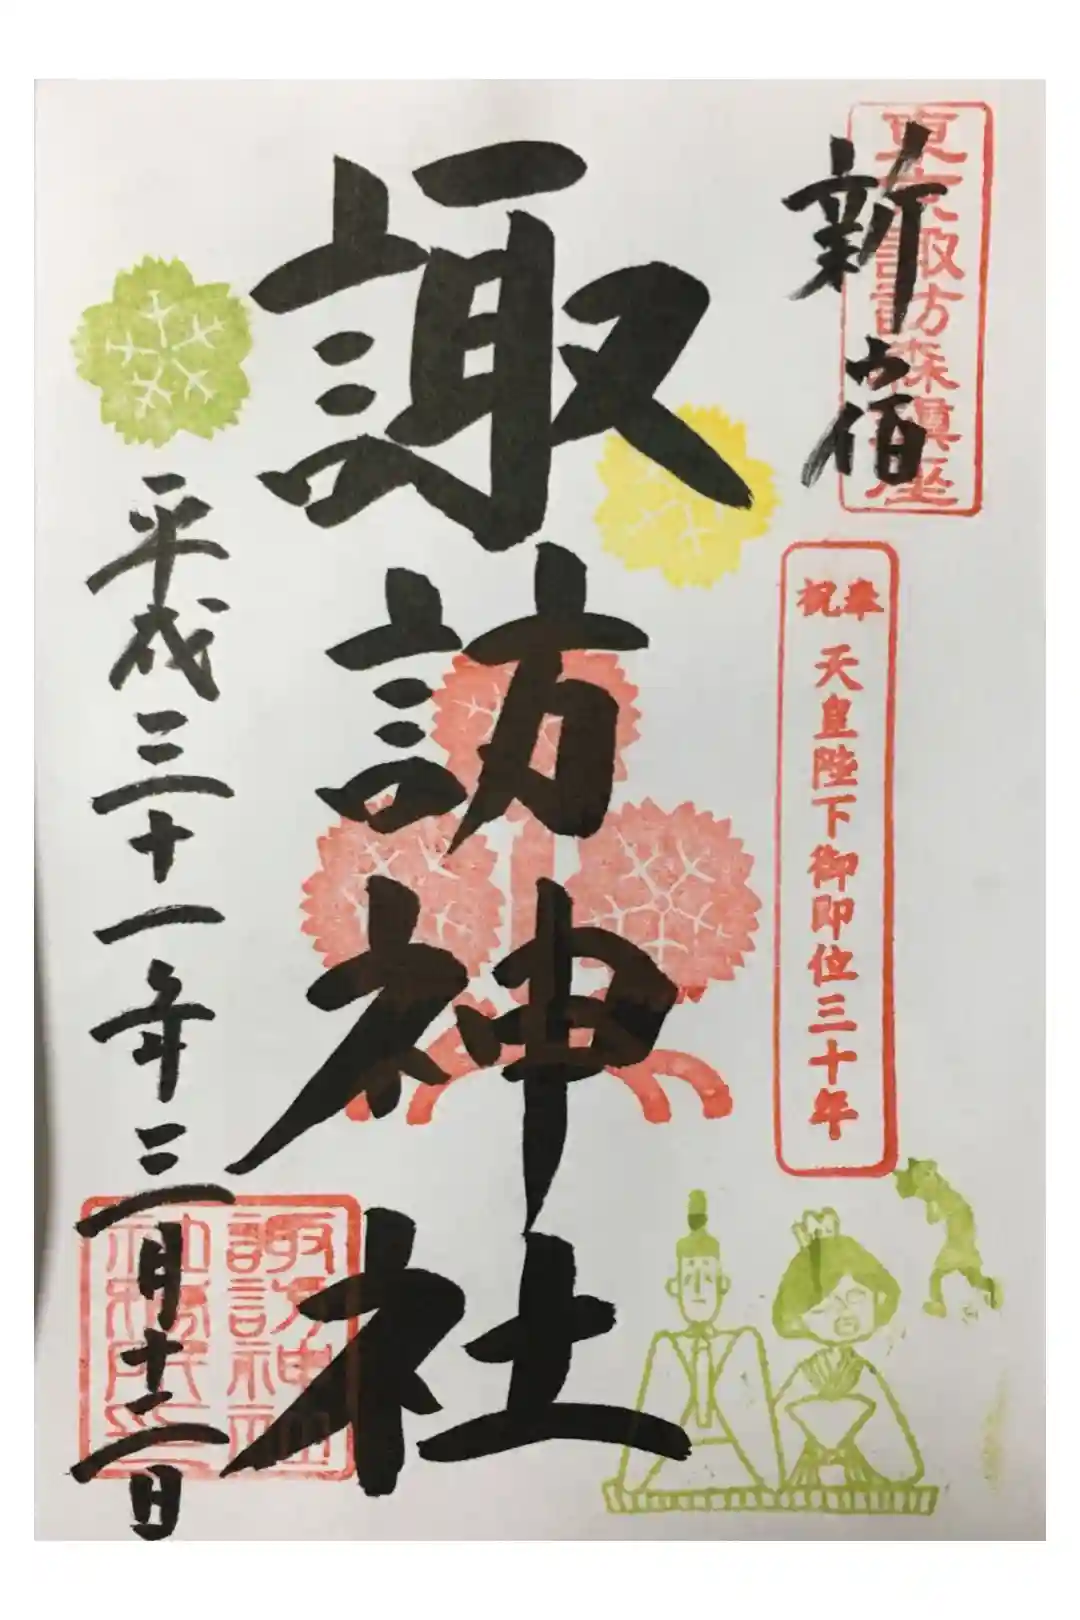 東京諏訪森鎮座
新宿
奉祝 天皇陛下御即位三十年
諏訪神社
平成三十一年三月十二日
諏訪神社
社務所印